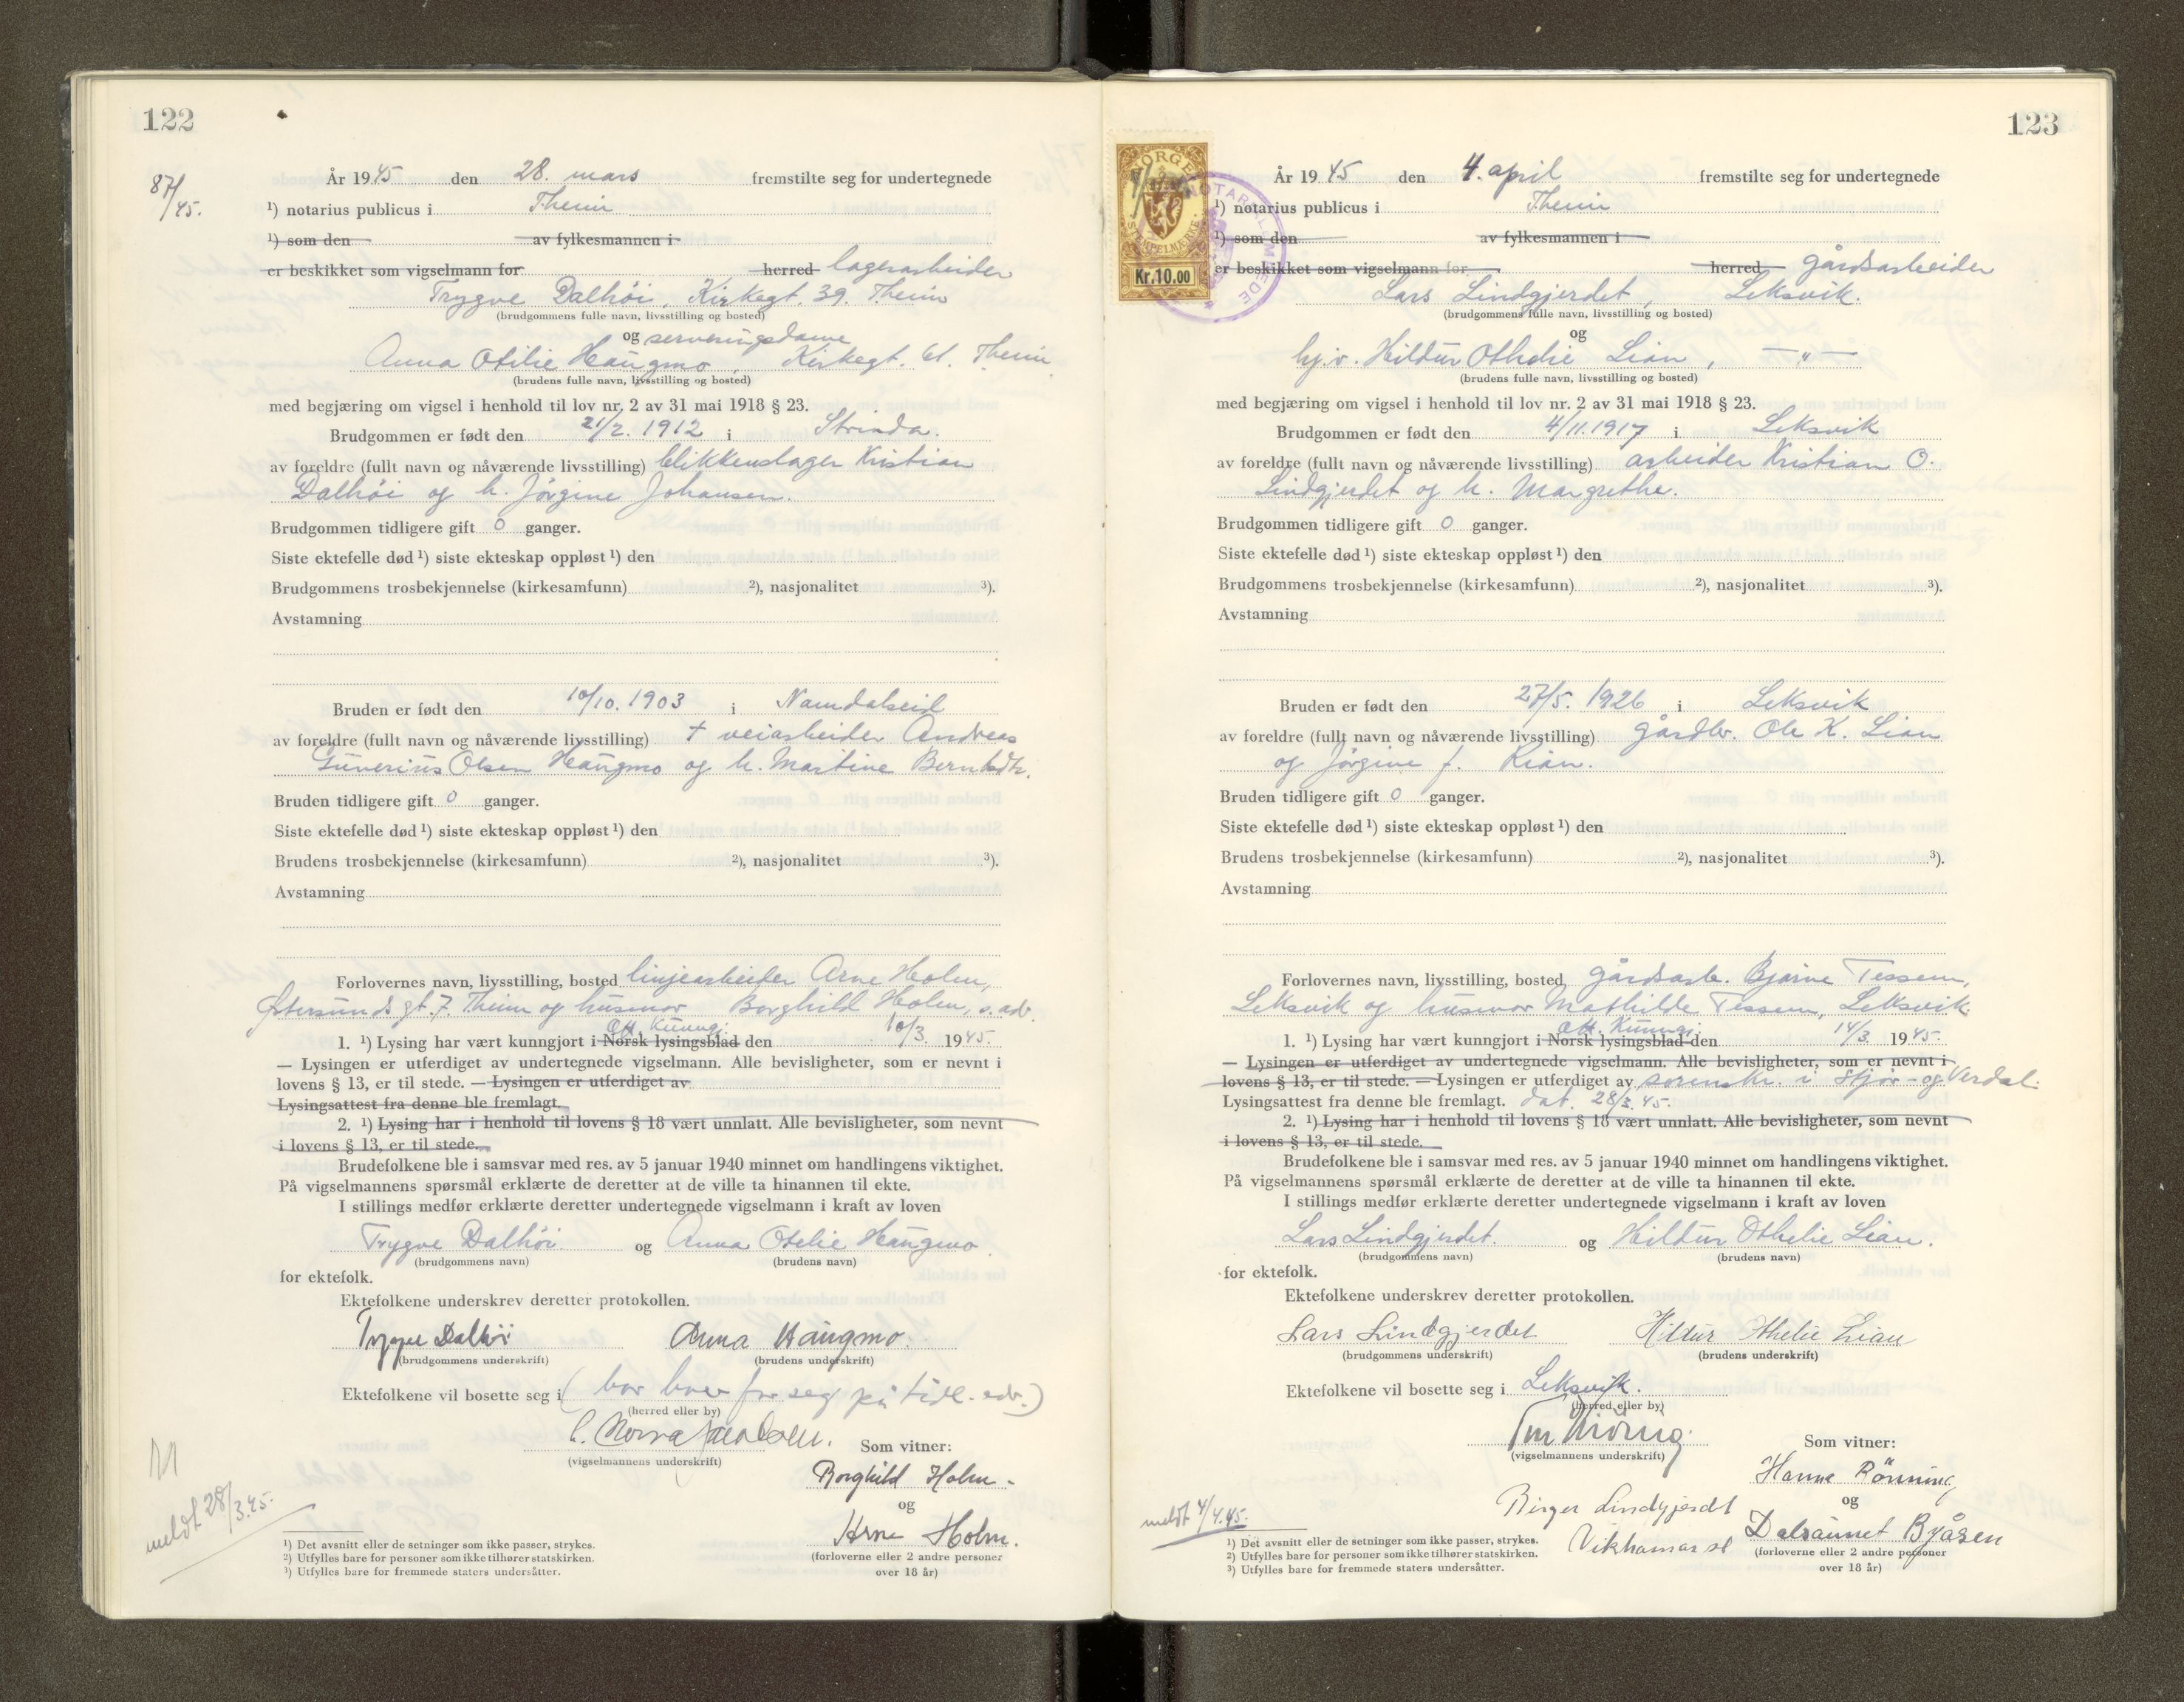 122
87/45.
År 1945 den 28. mars fremstilte seg for undertegnede
¹) notarius publicus i Theim
¹) som den av fylkesmannen i
er beskikket som vigselmann for herred lagerarbeider
Trygve Dalhöi, Kirkegt. 39. Theim
(brudgommens fulle navn, livsstilling og bosted)
og serveringsdame
Anna Otilie Haugmo, Kirkegt. 61. Theim
(brudens fulle navn, livsstilling og bosted)
med begjæring om vigsel i henhold til lov nr. 2 av 31 mai 1918 § 23.
Brudgommen er født den 21/2. 1912 i Strinda.
av foreldre (fullt navn og nåværende livsstilling) blikkenslager Kristian
Dalhöi og h. Jörgine Johansen.
Brudgommen tidligere gift 0 ganger.
Siste ektefelle død ¹) siste ekteskap oppløst ¹) den
Brudgommens trosbekjennelse (kirkesamfunn) ²), nasjonalitet ³).
Avstamning
Bruden er født den 10/10. 1903 i Namdalseid
av foreldre (fullt navn og nåværende livsstilling) + veiarbeider Andreas
Gunerius Olsen Haugmo og h. Martine Berntsdtr.
Bruden tidligere gift 0 ganger.
Siste ektefelle død ¹) siste ekteskap oppløst ¹) den
Brudens trosbekjennelse (kirkesamfunn) ²), nasjonalitet ³).
Avstamning
Forlovernes navn, livsstilling, bosted linjearbeider Arne Holm,
Østersundsgt. 7. Theim og husmor Borghild Holm, s. adr.
Off. Kunngj.
1. ¹) Lysing har vært kunngjort i Norsk lysingsblad den 10/3. 1945.
— Lysingen er utferdiget av undertegnede vigselmann. Alle bevisligheter, som er nevnt i
lovens § 13, er til stede. — Lysingen er utferdiget av
Lysingsattest fra denne ble fremlagt.
2. ¹) Lysing har i henhold til lovens § 18 vært unnlatt. Alle bevisligheter, som nevnt
i lovens § 13, er til stede.
Brudefolkene ble i samsvar med res. av 5 januar 1940 minnet om handlingens viktighet.
På vigselmannens spørsmål erklærte de deretter at de ville ta hinannen til ekte.
I stillings medfør erklærte deretter undertegnede vigselmann i kraft av loven
Trygve Dalhöi. og Anna Otelie Haugmo
(brudgommens navn) (brudens navn)
for ektefolk.
Ektefolkene underskrev deretter protokollen.
Trygve Dalhöi Anna Haugmo.
(brudgommens underskrift) (brudens underskrift)
Ektefolkene vil bosette seg i (bor hver for seg på tidl. adr.)
(herred eller by)
Som vitner:
(vigselmannens underskrift)
Borghild Holm.
og
Arne Holm.
(forloverne eller 2 andre personer
over 18 år)
meldt 28/3.45.
¹) Det avsnitt eller de setninger som ikke passer, strykes.
²) Utfylles bare for personer som ikke tilhører statskirken.
³) Utfylles bare for fremmede staters undersåtter.
123
NORGE
STEMPELMERKE
Kr. 10.00
År 1945 den 4. april fremstilte seg for undertegnede
¹) notarius publicus i Theim
¹) som den av fylkesmannen i
er beskikket som vigselmann for herred gårdsarbeider
Lars Lindgjerdet, Leksvik.
(brudgommens fulle navn, livsstilling og bosted)
og
hj.v. Hildur Othelie Lian, —"—
(brudens fulle navn, livsstilling og bosted)
med begjæring om vigsel i henhold til lov nr. 2 av 31 mai 1918 § 23.
Brudgommen er født den 4/11.1917 i Leksvik
av foreldre (fullt navn og nåværende livsstilling) arbeider Kristian O.
Lindgjerdet og h. Margrethe.
Brudgommen tidligere gift 0 ganger.
Siste ektefelle død ¹) siste ekteskap oppløst ¹) den
Brudgommens trosbekjennelse (kirkesamfunn) ²), nasjonalitet ³).
Avstamning
Bruden er født den 27/5. 1926 i Leksvik
av foreldre (fullt navn og nåværende livsstilling) gårdbr. Ole K. Lian
og Jörgine f. Rian.
Bruden tidligere gift 0 ganger.
Siste ektefelle død ¹) siste ekteskap oppløst ¹) den
Brudens trosbekjennelse (kirkesamfunn) ²), nasjonalitet ³).
Avstamning
Forlovernes navn, livsstilling, bosted gårdsarb. Bjarne Tessem,
Leksvik og husmor Mathilde Tessem, Leksvik.
Off. Kunngj.
1. ¹) Lysing har vært kunngjort i Norsk lysingsblad den 14/3. 1945.
— Lysingen er utferdiget av undertegnede vigselmann. Alle bevisligheter, som er nevnt i
lovens § 13, er til stede. — Lysingen er utferdiget av sorenskr. i Stjør- og Verdal.
Lysingsattest fra denne ble fremlagt. dat. 28/3.45.
2. ¹) Lysing har i henhold til lovens § 18 vært unnlatt. Alle bevisligheter, som nevnt
i lovens § 13, er til stede.
Brudefolkene ble i samsvar med res. av 5 januar 1940 minnet om handlingens viktighet.
På vigselmannens spørsmål erklærte de deretter at de ville ta hinannen til ekte.
I stillings medfør erklærte deretter undertegnede vigselmann i kraft av loven
Lars Lindgjerdet. og Hildur Othelie Lian.
(brudgommens navn) (brudens navn)
for ektefolk.
Ektefolkene underskrev deretter protokollen.
Lars Lindgjerdet Hildur Othelie Lian
(brudgommens underskrift) (brudens underskrift)
Ektefolkene vil bosette seg i Leksvik.
(herred eller by)
Som vitner:
(vigselmannens underskrift)
Hanna Rönning
Birger Lindgjerdt og
Vikhamar st Dalsaunet Byåsen
(forloverne eller 2 andre personer
over 18 år)
meldt 4/4.45.
¹) Det avsnitt eller de setninger som ikke passer, strykes.
²) Utfylles bare for personer som ikke tilhører statskirken.
³) Utfylles bare for fremmede staters undersåtter.